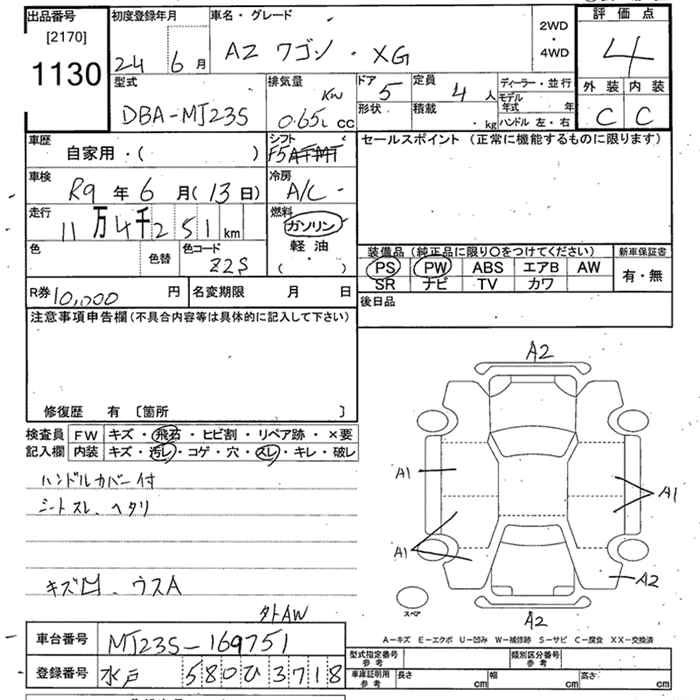 出品番号 初度登録年月 車名・グレード 2WD・4WD 評価点
[2170]
1130
24 6月 AZ ワゴン・XG 4
型式 排気量 ドア 定員 ディーラー・並行 外装 内装
DBA-MJ23S 0.65L CC KW 5 4人 モデル年式 年 C C
形状 積載 ・kg ハンドル 左・右
車歴 シフト セールスポイント (正常に機能するものに限ります)
自家用・( ) F5AT・MT
車検 冷房
R9年6月(13日) A/C -
走行 燃料
11万4千251km ガソリン
軽油
( )
色 色替 色コード 装備品 (純正品に限り〇をつけてください) 新車保証書
Z2S PS PW ABS エアB AW 有・無
SR ナビ TV カワ
R券 10,000円 名変期限 月 日 後日品
注意事項申告欄(不具合内容等は具体的に記入して下さい)
修復歴 有 〔箇所 〕
検査員 FW キズ・飛石・ヒビ割・リペア跡・×要
記入欄 内装 キズ・汚レ・コゲ・穴・スレ・キレ・破レ
ハンドルカバー付
シートスレ、ヘタリ
キズ凹、ウスA
外AW
A2
A1
A1
A1
A2
スペア
A2
A-キズ E-エクボ U-凹み W-補修跡 S-サビ C-腐食 XX-交換済
車台番号 MJ23S-169751
型式指定番号 参考 類別区分番号 参考
登録番号 水戸 580 ひ 3718
車庫証明用 参考 長さ cm 幅 cm 高さ cm